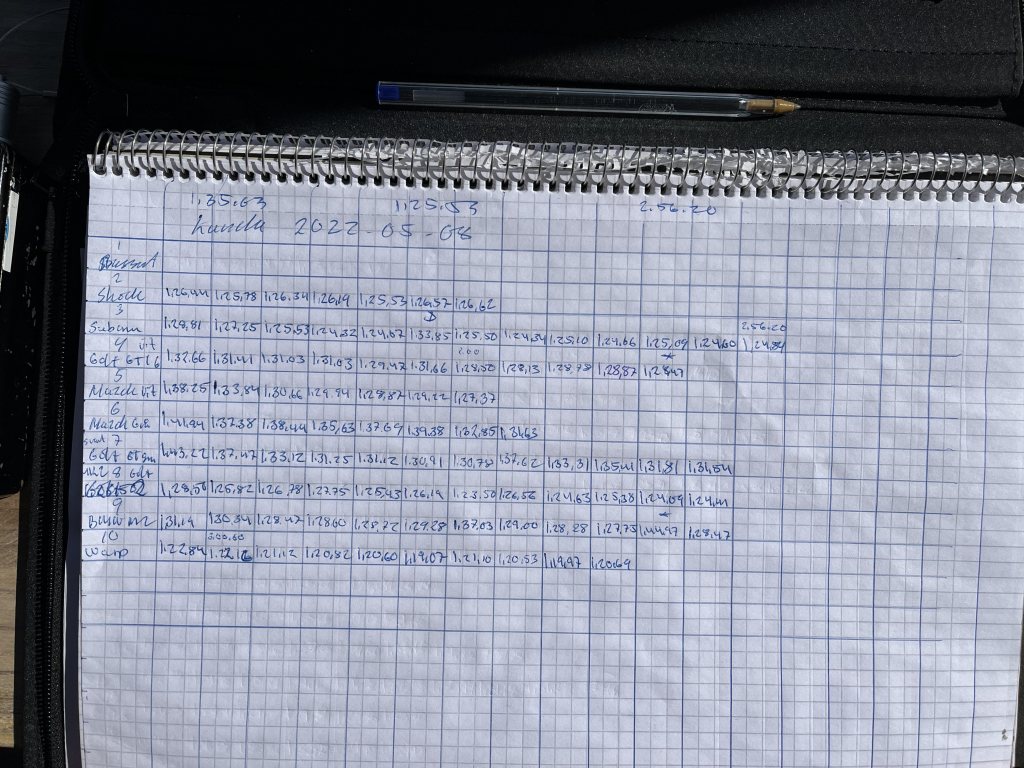 1,35.63 1,25.53 2.56.20
2022-05-08
1
2
Skoda 1,26,44 1,25,78 1,26.34 1,26,19 1,25,53 1,26,57 1,26,62
3
Subaru 1,28,81 1,27,25 1,25,53 1,24,32 1,24,67 1,33,85 1,25,50 1,24,34 1,25,10 1,24,66 1,25,09 1,24,60 1,24,84
2,56.20
4 vit
Golf GTI 6 1,32,66 1,31,41 1,31,03 1,31,03 1,29,47 1,31,66 1,28,50 1,28,13 1,28,78 1,28,87 1,28,47
200
5
Mazda vit 1,38.25 1,33,84 1,30,66 1,29,94 1,28,87 1,29,22 1,27,37
6
Mazda 1,41,94 1,37,38 1,38,44 1,35,63 1,37,69 1,39,38 1,32,85 1,31,63
svart 7
Golf 1,43,22 1,37,47 1,33,12 1,31,25 1,31,12 1,30,91 1,30,78 1,37,62 1,33,31 1,35,41 1,31,81 1,31,54
8 Golf
1,28,50 1,25,82 1,26,78 1,27,75 1,25,43 1,26,19 1,25,50 1,26,56 1,24,63 1,25,38 1,24,09 1,24,41
9
BMW M2 1,31,19 1,30,34 1,28,47 1,28,60 1,28,72 1,29,28 1,37,03 1,29,00 1,28,28 1,27,75 1,44,97 1,28,47
10
Warp 1,22,84 1,22,12 1,21,12 1,20,82 1,20,60 1,19,07 1,21,10 1,20,53 1,19,97 1,20,69